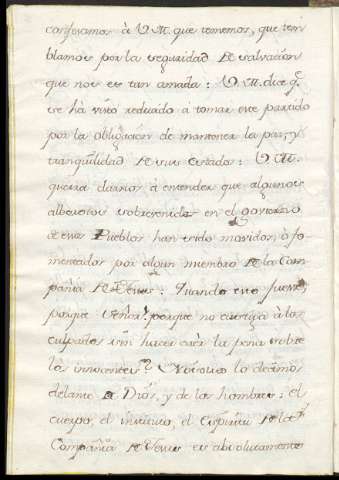 confesamos à V. M. que tememos, que tem
blamos por la seguridad de salvacion
que nos es tan amada: V. M. dice q.e
se hà visto reducido à tomar este partido
por la obligacion de mantener la paz, y
tranquilidad de sus estados: V. M.
querrà darnos à entender que algunos
alborotos sobrevenidos en el govierno
de sus Pueblos han sido movidos, ò fo
mentados por algun miembro de la Com
pañia de Jesus: Quando esto fuere,
porque Señor? porque no castiga à los
culpados sin hacer caer la pena sobre
los innocentes? Nosotros lo decimos
delante de Dios, y de los hombres: el
cuerpo, el instituto, el Espiritu de la
Compañia de Jesus es absolutamente